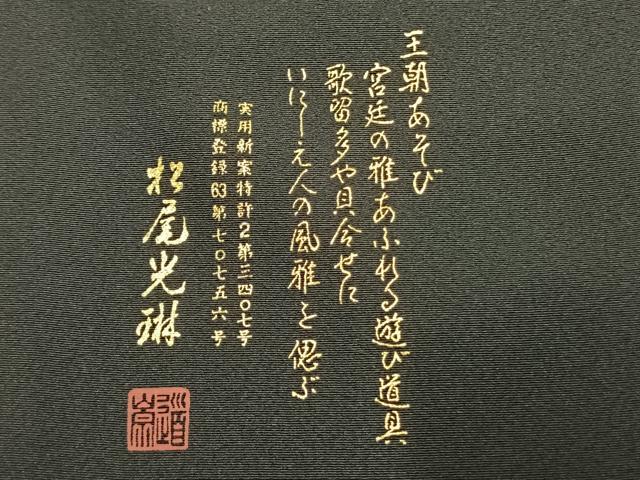 王朝あそび
宮廷の雅あふれる遊び道具
歌留多や貝合せに
いにしえ人の風雅を偲ぶ
実用新案特許2第三四〇七号
商標登録63第七〇七五六号
松尾光琳